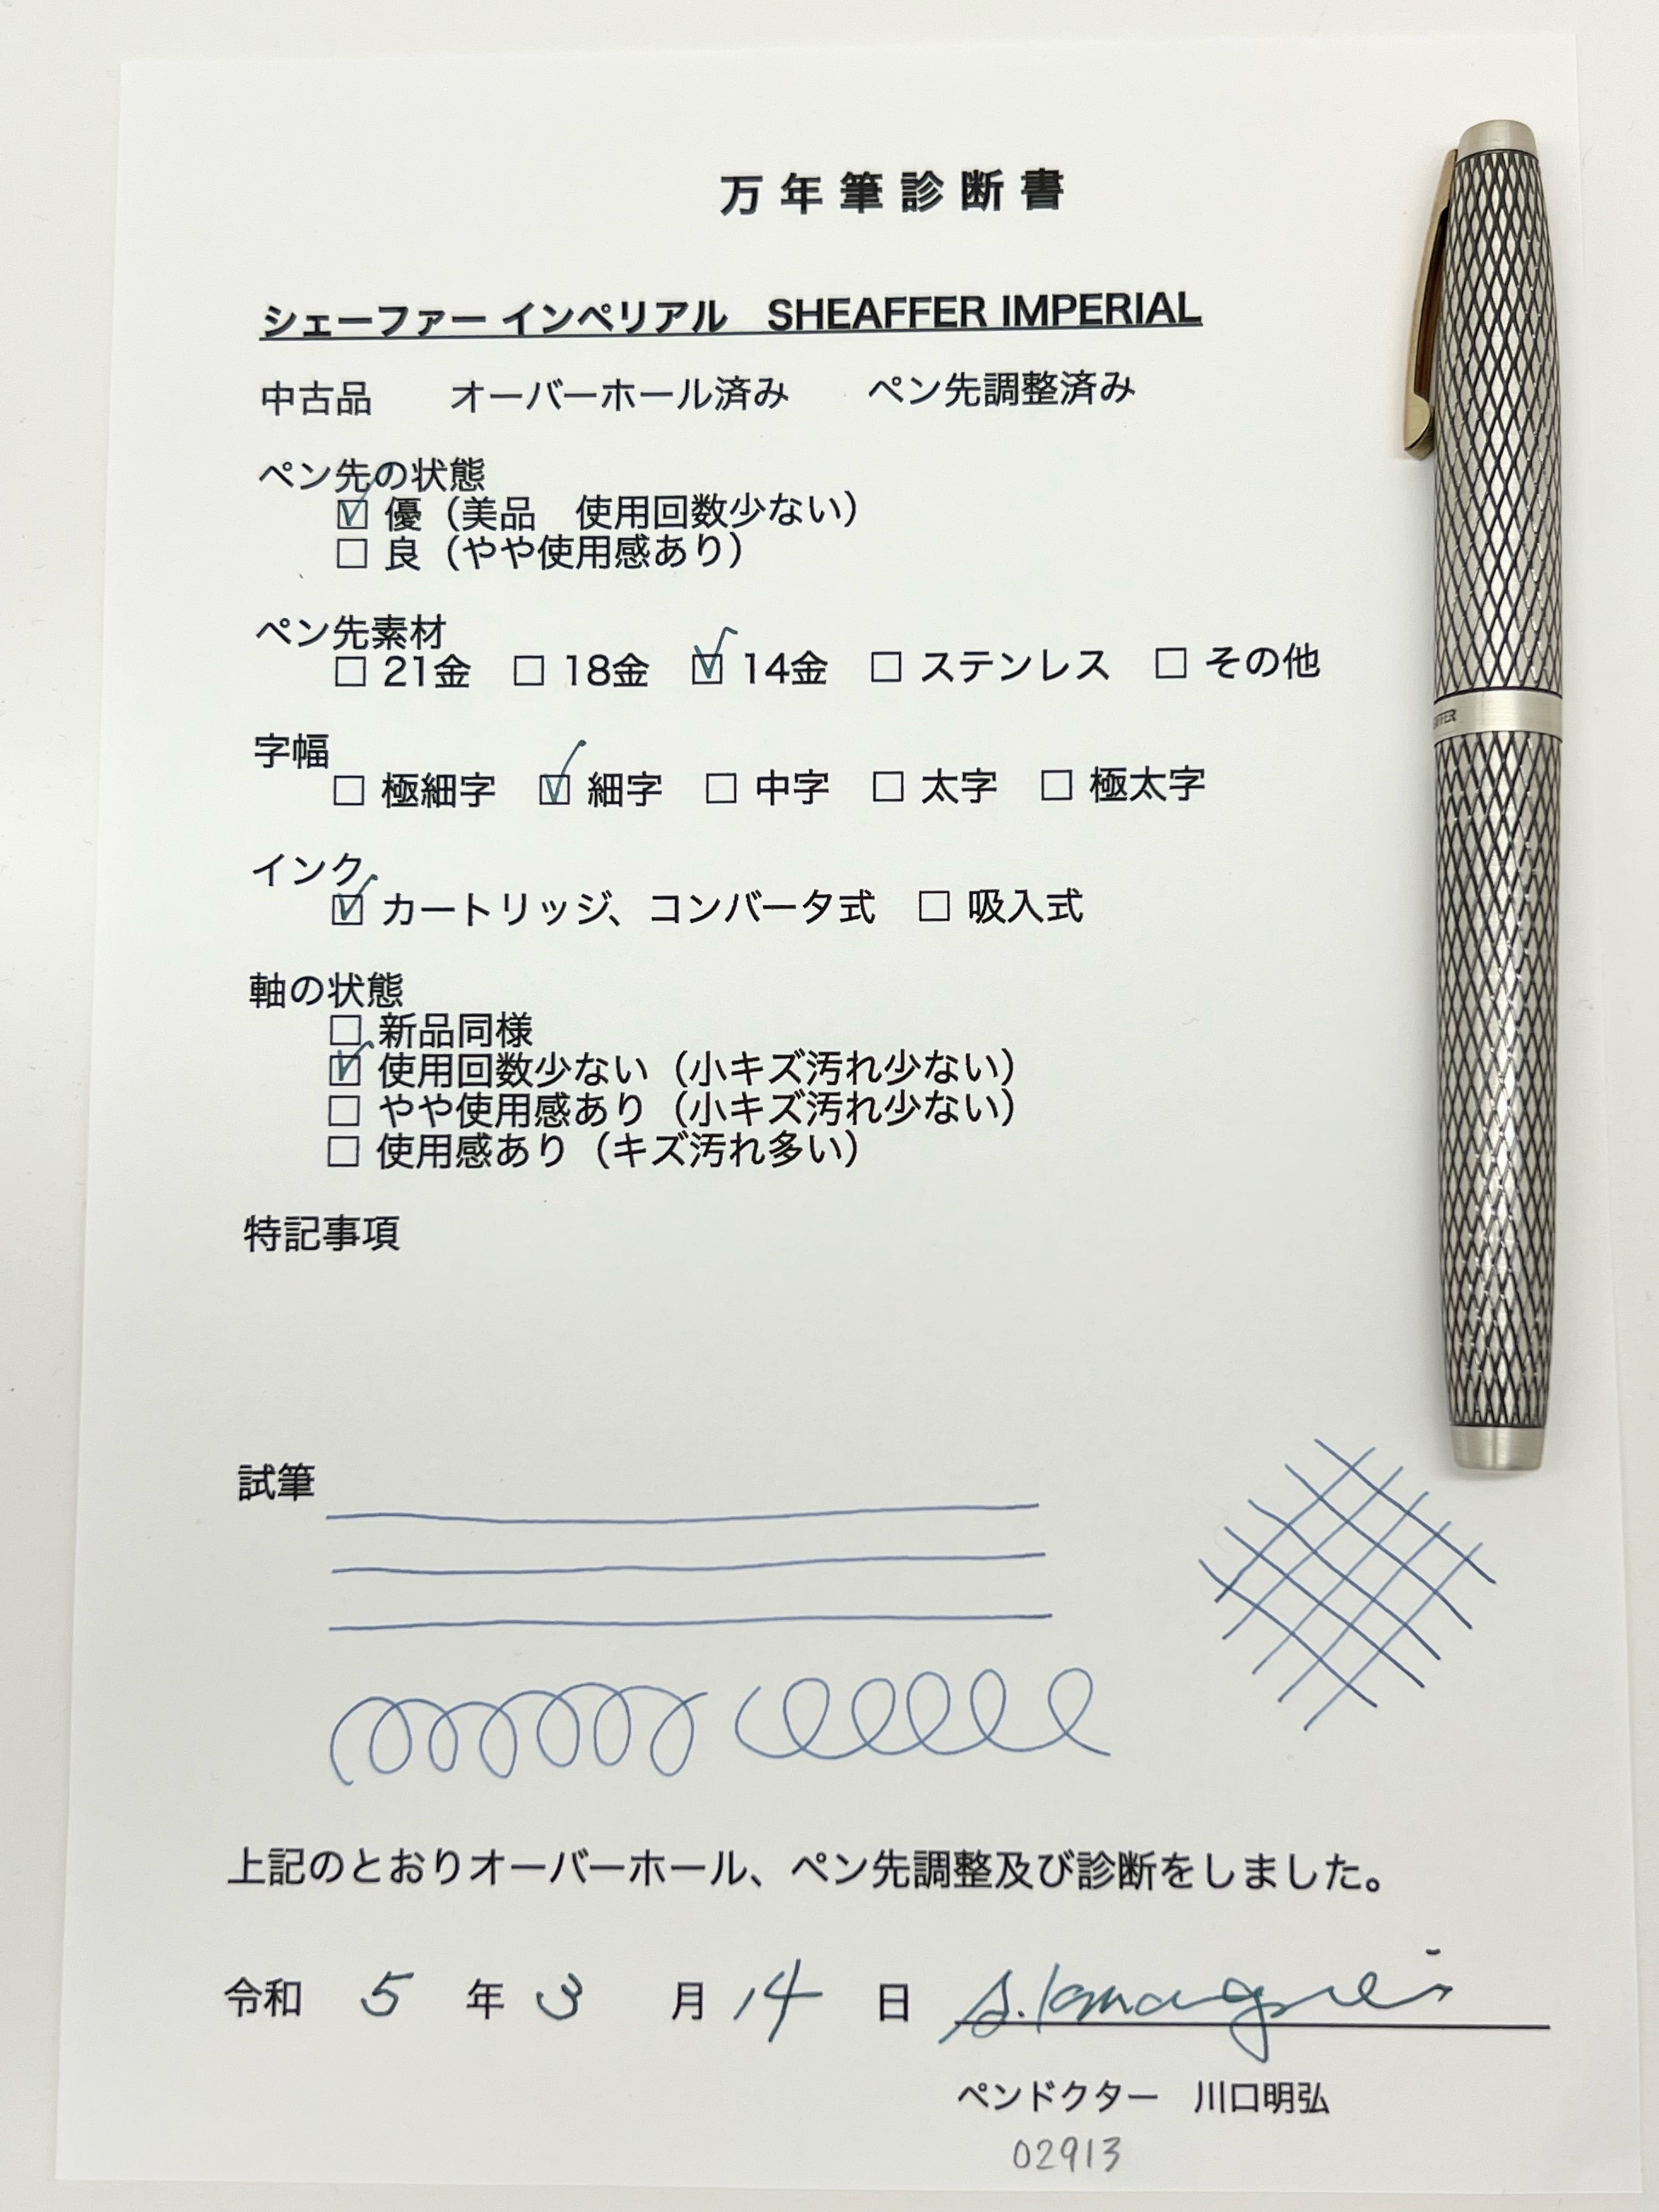 万年筆診断書
シェーファー インペリアル　SHEAFFER IMPERIAL
中古品　　オーバーホール済み　　ペン先調整済み
ペン先の状態
☑ 優（美品　使用回数少ない）
☐ 良（やや使用感あり）
ペン先素材
☐ 21金　☐ 18金　☑ 14金　☐ ステンレス　☐ その他
字幅
☐ 極細字　☑ 細字　☐ 中字　☐ 太字　☐ 極太字
インク
☑ カートリッジ、コンバータ式　☐ 吸入式
軸の状態
☐ 新品同様
☑ 使用回数少ない（小キズ汚れ少ない）
☐ やや使用感あり（小キズ汚れ少ない）
☐ 使用感あり（キズ汚れ多い）
特記事項
試筆
上記のとおりオーバーホール、ペン先調整及び診断をしました。
令和　5　年　3　月　14　日
ペンドクター　川口明弘
02913